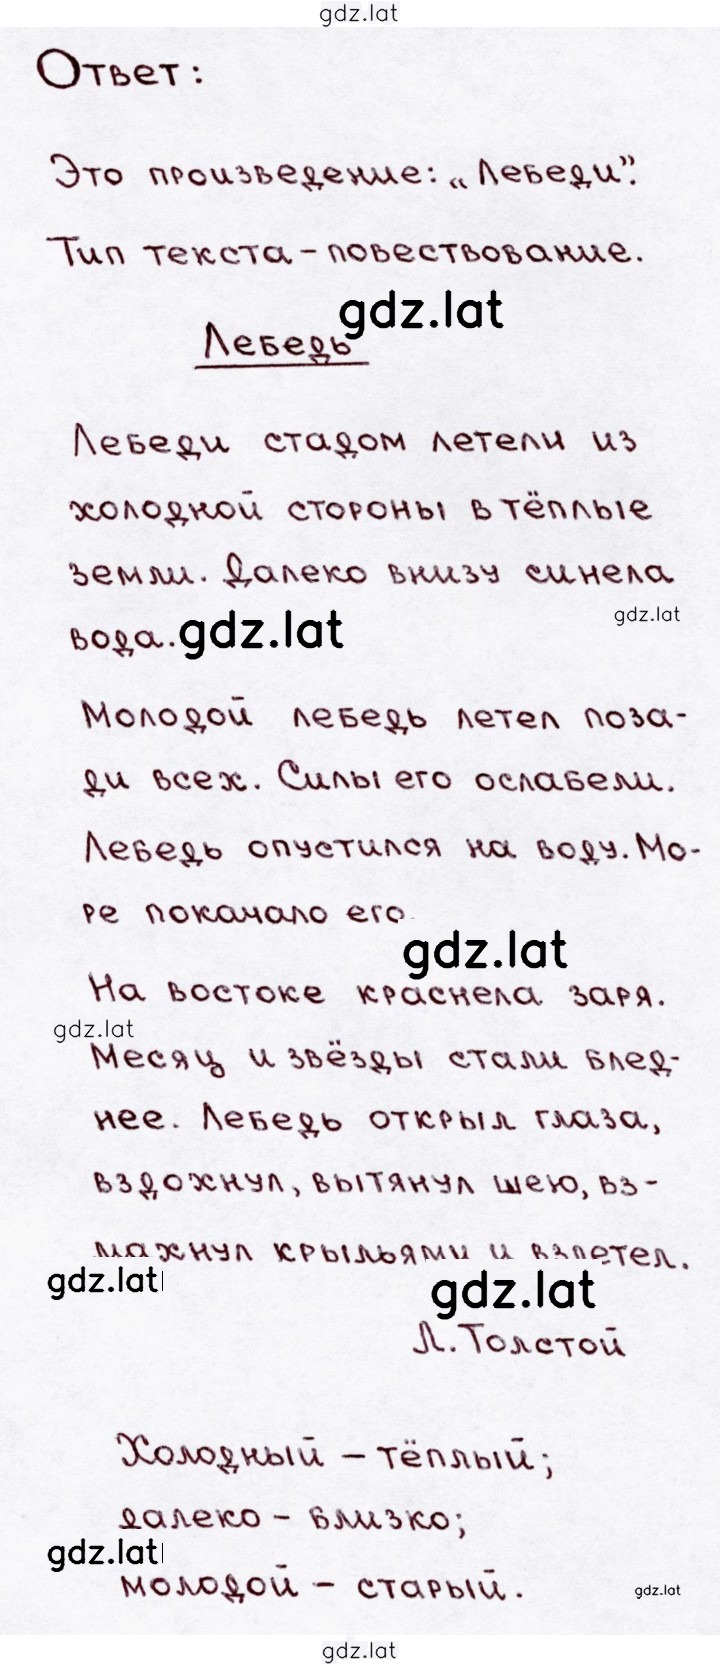 gdz.lat
Ответ:
Это произведение: „Лебеди”.
Тип текста - повествование.
gdz.lat
Лебедь
Лебеди стадом летели из
холодной стороны в тёплые
земли. Далеко внизу синела
gdz.lat
вода. gdz.lat
Молодой лебедь летел поза-
ди всех. Силы его ослабели.
Лебедь опустился на воду. Мо-
ре покачало его
gdz.lat
На востоке краснела заря.
gdz.lat
Месяц и звёзды стали блед-
нее. Лебедь открыл глаза,
вздохнул, вытянул шею, вз-
махнул крыльями и взлетел.
gdz.lat gdz.lat
Л. Толстой
Холодный - тёплый;
далеко - близко;
gdz.lat
молодой - старый.
gdz.lat
gdz.lat